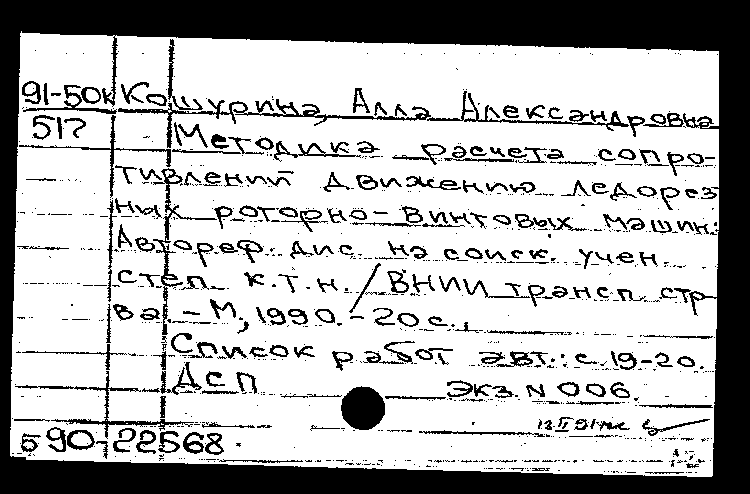 91-50к Кошурина, Алла Александровна
517 Методика расчета сопро-
тивлений движению ледорез
ных роторно-винтовых машин:
Автореф. дис. на соиск. учен.
степ. к.т.н. / ВНИИ трансп. стр-
ва. - М., 1990. - 20 с.,
Список работ авт.: с. 19-20.
Дсп Экз. N 006.
590-22568.